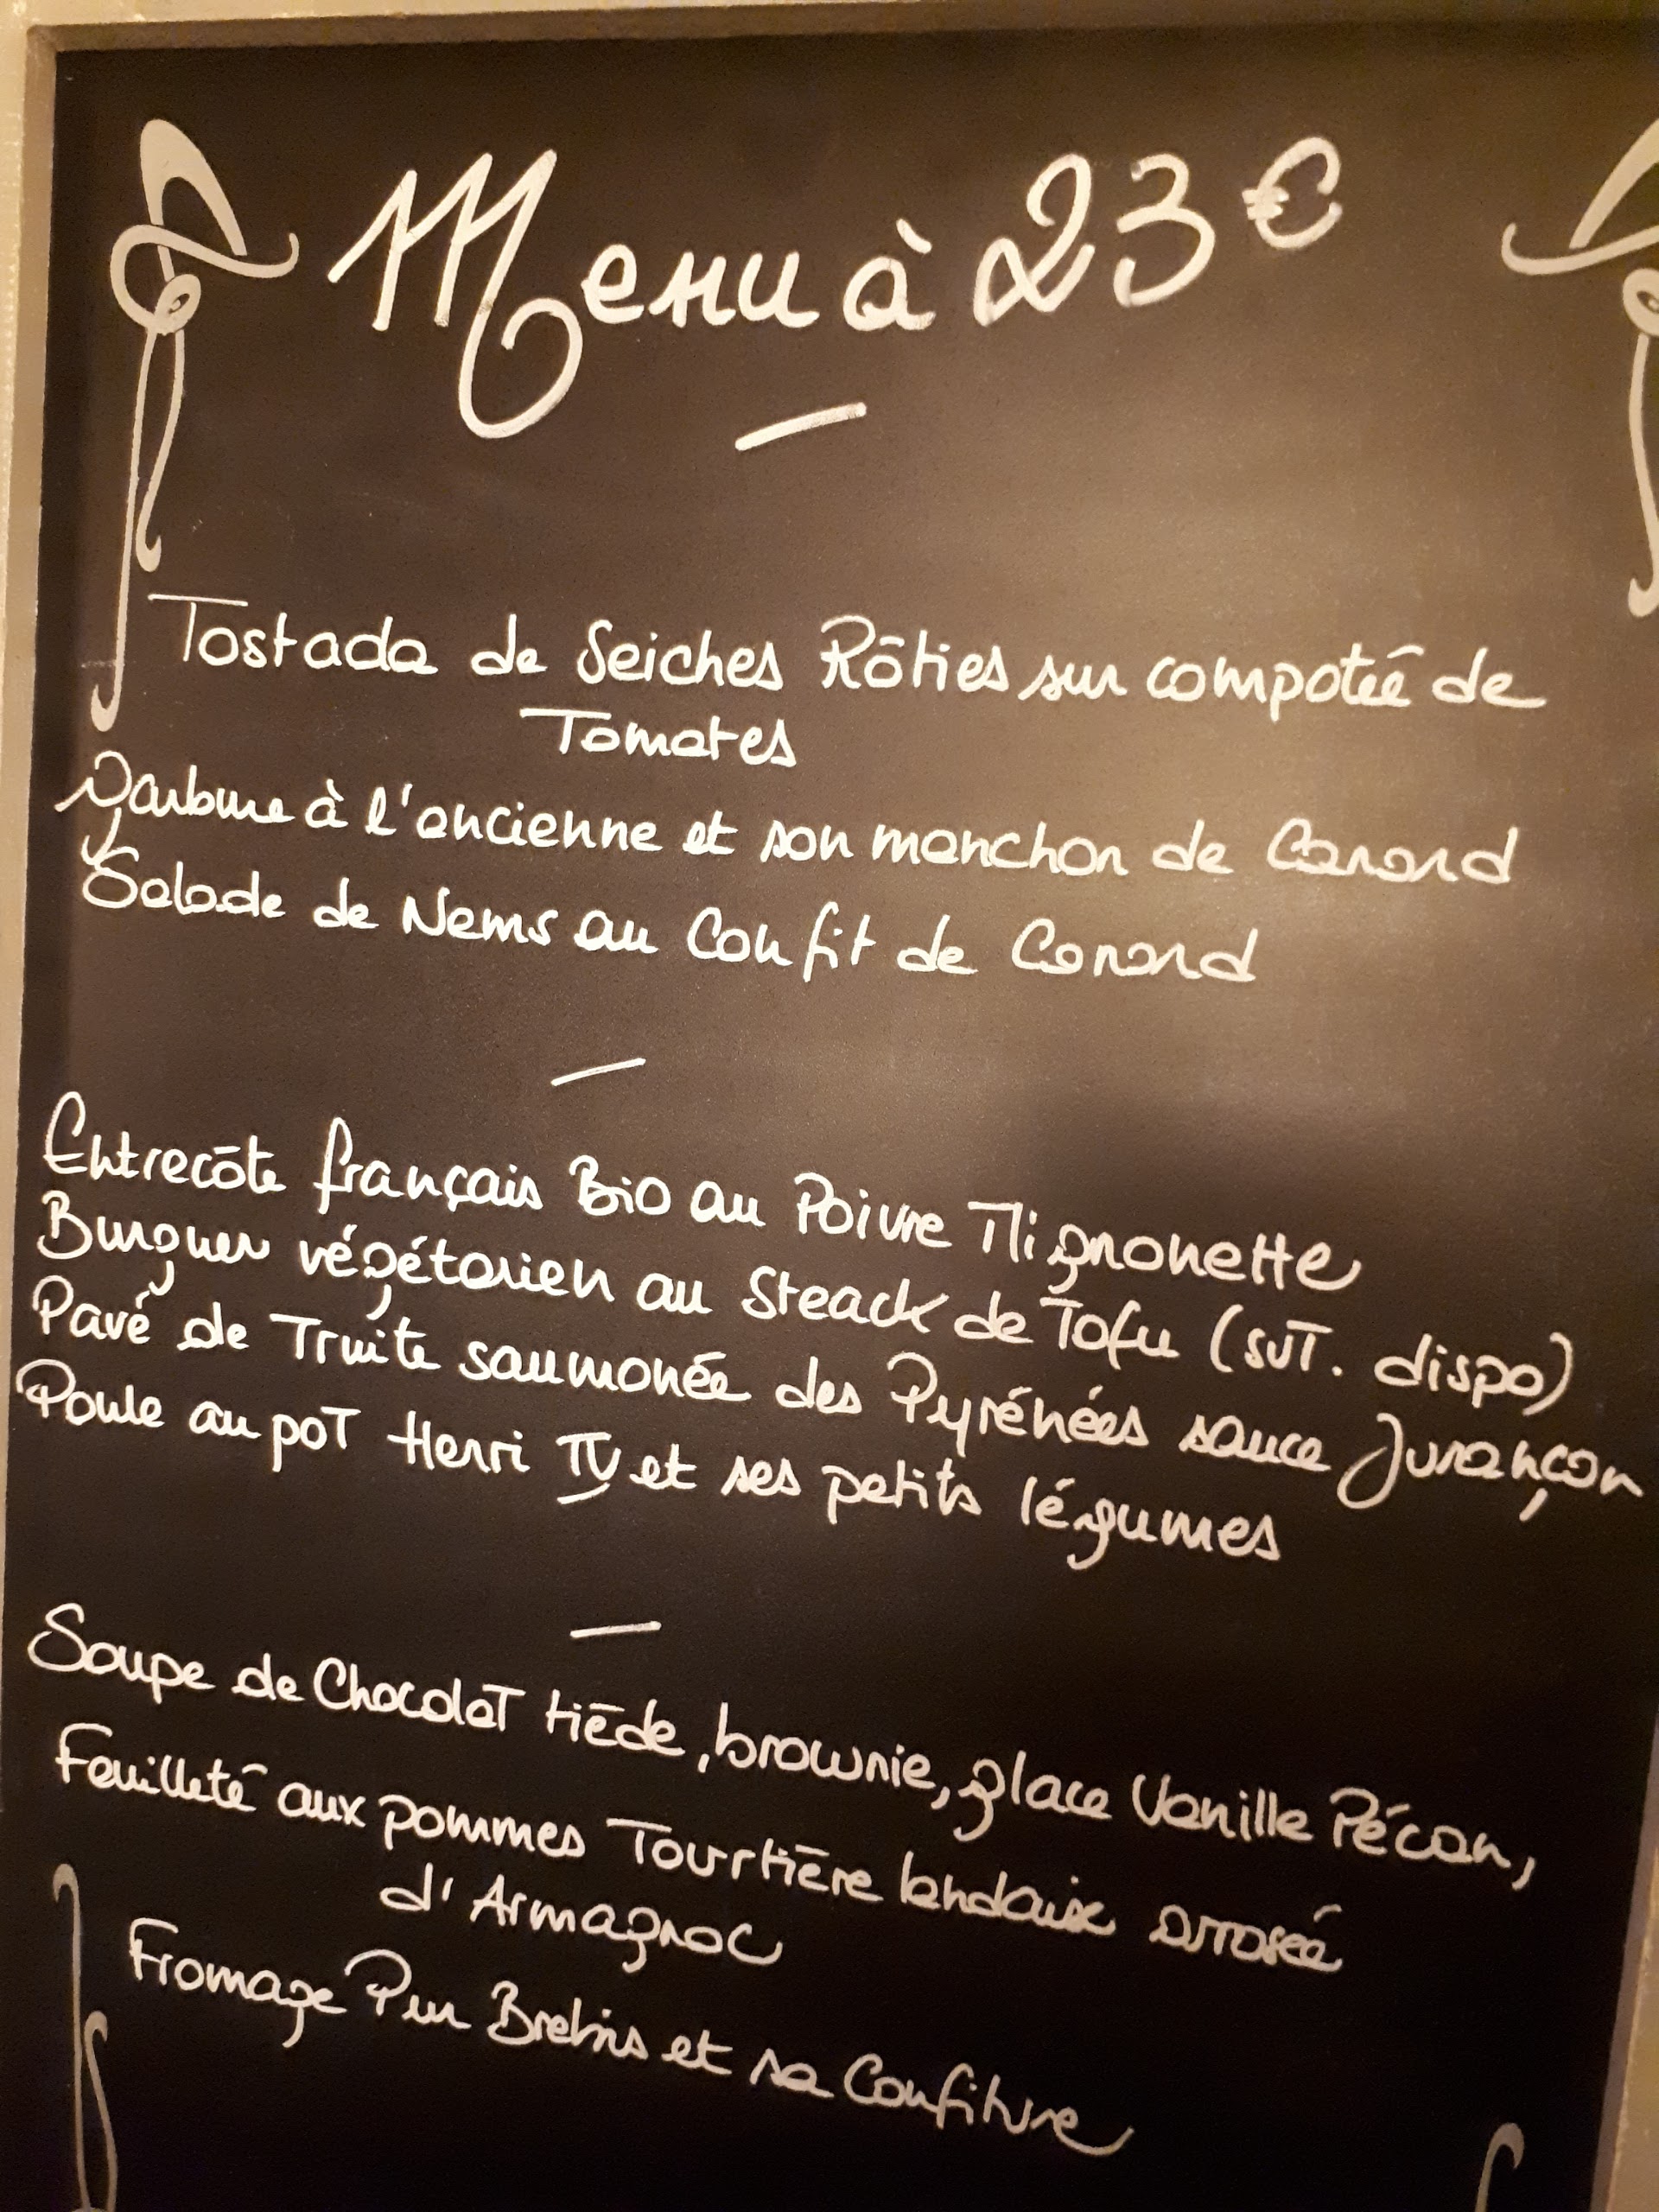 Menu à 23€
Tostada de Seiches Rôties sur compotée de
Tomates
Garbure à l'ancienne et son manchon de Canard
Salade de Nems au Confit de Canard
Entrecôte français Bio au Poivre Mignonette
Burguer végétarien au Steack de Tofu (svT. dispo)
Pavé de Truite saumonée des Pyrénées sauce Jurançon
Poule au pot Henri IV et ses petits légumes
Soupe de Chocolat tiède, brownie, glace Vanille Pécan,
Feuilleté aux pommes Tourtière landaise arrosée
d'Armagnac
Fromage Pur Brebis et sa Confiture